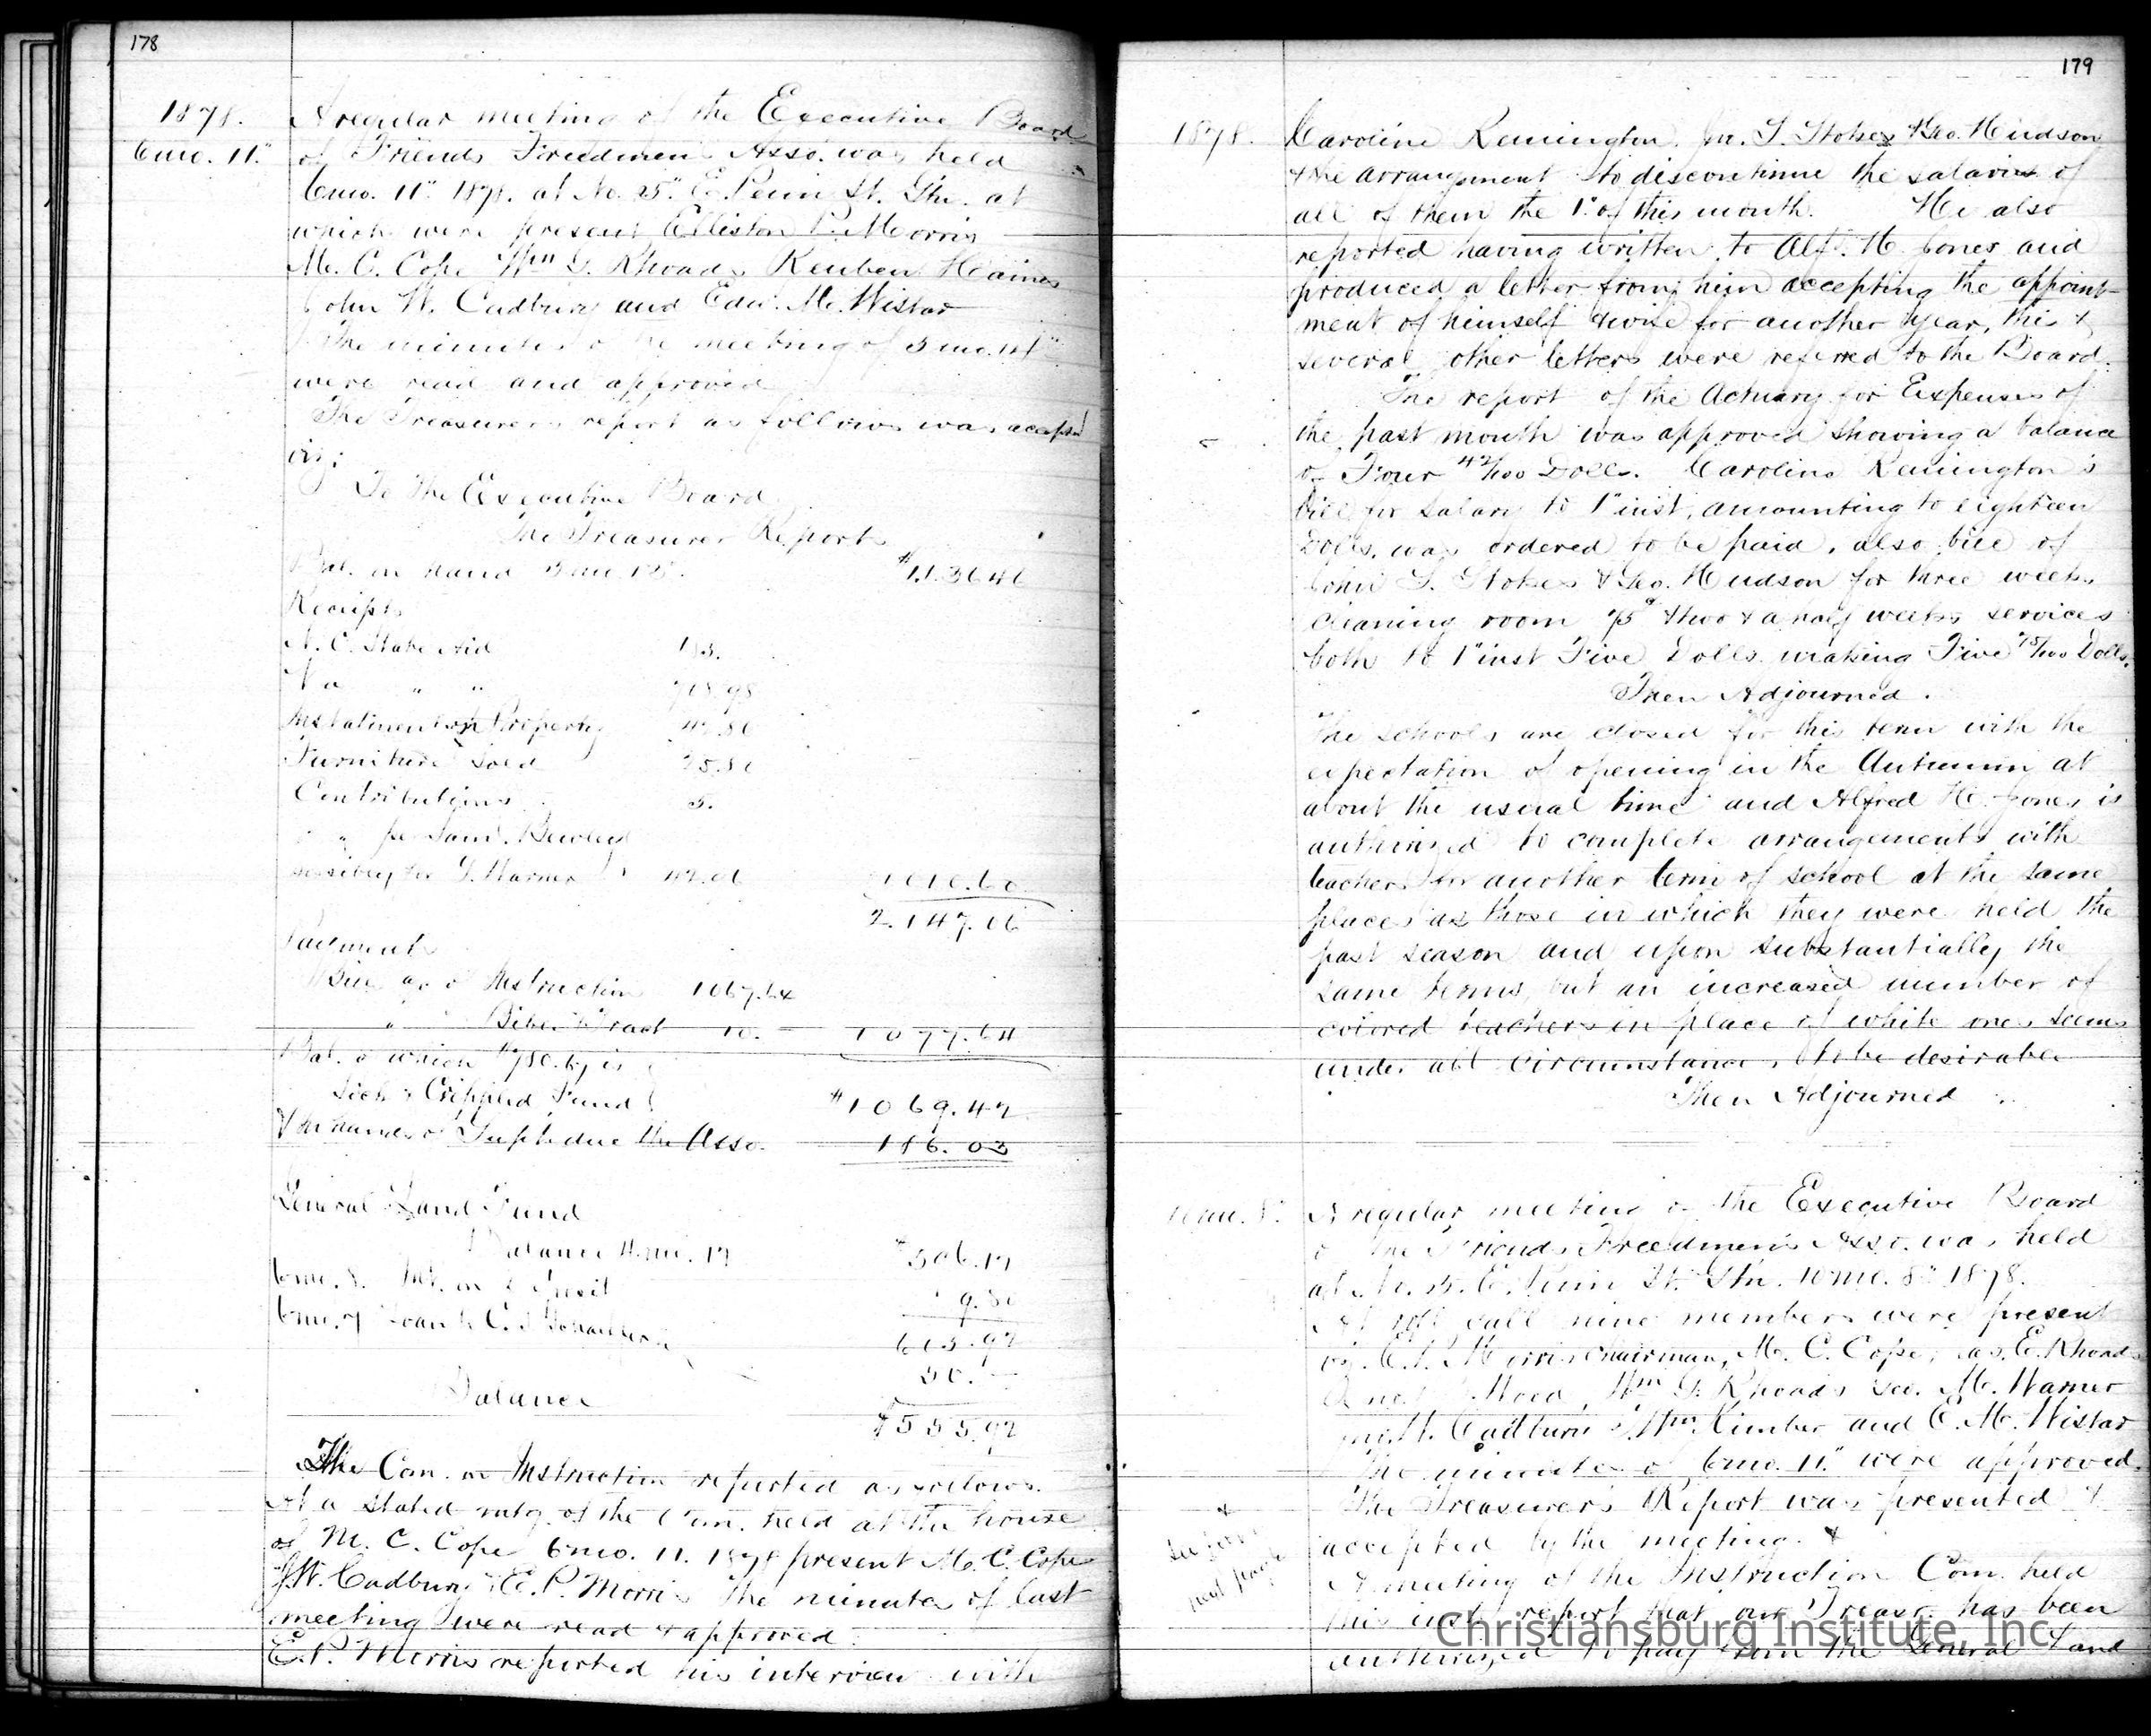 178
1878.
6mo. 11.
A regular meeting of the Executive Board
of Friends Freedmen's Asso. was held
6mo. 11" 1878. at No. 25" E. Penn St. Gtn. at
which were present Elliston P. Morris
M. C. Cope Wm G. Rhoads Reuben Haines
John W. Cadbury and Edw. M. Wistar
The minutes of the meeting of 5 mo.
were read and approved
The Treasurers report as follows was accepted
viz;
To the Executive Board
The Treasurer Reports
Bal. on hand 5 mo. $1136.46
Receipts
N. C. State Aid
Va " " 718.98
Instalments on Property
Furniture Sold
Contributions 5.
" per Saml. Bewley
for Y. Warner 1010.60
2.147.06
Payments
Bills ap. of Instruction 1067.64
" Bible & Tract 10. — 1077.64
Bal. of which is
Sick & Crippled Fund $1069.42
& in hands of Supt. due the Asso. 116.03
General Land Fund
Balance
6mo. 8. Int. on Deposit
6mo. Loan to C. S.
50. —
Balance $555.97
The Com. on Instruction reported as follows.
At a stated mtg. of the Com. held at the house
of M. C. Cope 6mo. 11. 1878 present M. C. Cope
J. W. Cadbury & E. P. Morris The minutes of last
meeting were read & approved.
E. P. Morris reported his interview with
179
1878.
Caroline Remington, Jn. S. Stokes & Geo. Hudson
& the arrangement to discontinue the salaries of
all of them the 1" of this month. He also
reported having written to Alf. H. Jones and
produced a letter from him accepting the appoint-
ment of himself & wife for another year, this &
several other letters were referred to the Board.
The report of the Actuary for Expenses of
the past month was approved showing a balance
of Four 42/100 Dolls. Caroline Remington's
bill for salary to 1" inst, amounting to eighteen
Dolls. was ordered to be paid, also bill of
John S. Stokes & Geo. Hudson for three weeks
cleaning room 75c & two & a half weeks services
both to 1" inst Five Dolls. making Five 75/100 Dolls.
Then Adjourned.
The schools are closed for this term with the
expectation of opening in the Autumn at
about the usual time and Alfred H. Jones is
authorized to complete arrangements with
teachers for another term of school at the same
places as those in which they were held the
past season and upon substantially the
same terms, but an increased number of
colored teachers in place of white ones seems
under all circumstances, to be desirable
Then Adjourned
10 mo. 8.
A regular meeting of the Executive Board
of the Friends Freedmen's Asso. was held
at E. Penn St. Gtn. 10 mo. 8" 1878.
At roll call nine members were present
viz. E. P. Morris Chairman, M. C. Cope, Jas. E. Rhoads
Wood, Wm G. Rhoads Geo. M. Warner
Cadbury Wm Kimber and E. M. Wistar
The minutes of 6mo. 11" were approved.
The Treasurer's Report was presented &
accepted by the meeting. x
x
See
next page
A meeting of the Instruction Com. held
this inst. report that our Treasr. has been
authorized to pay from the General Land
Christiansburg Institute, Inc.